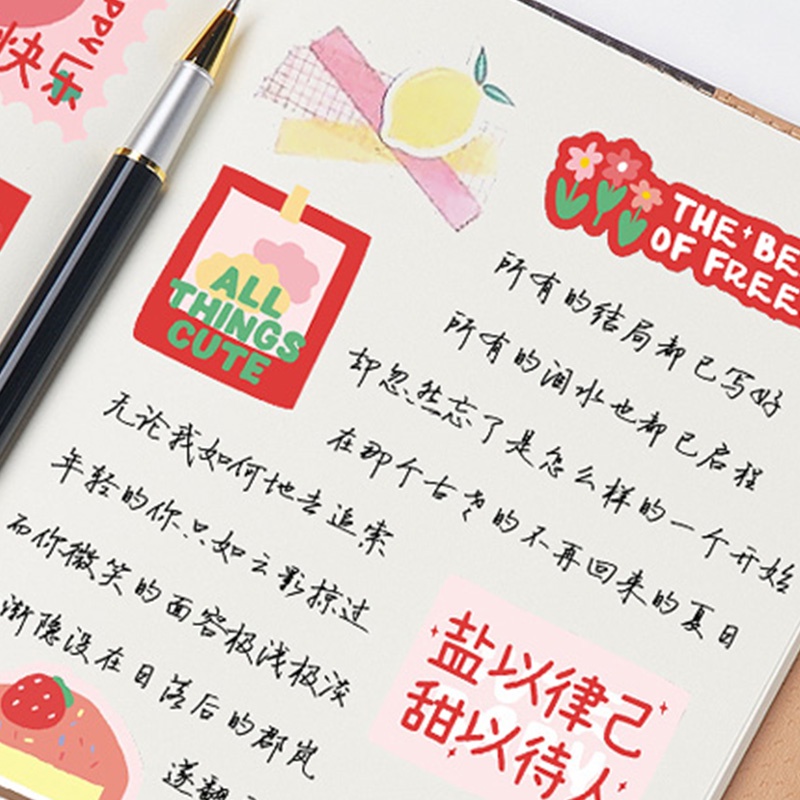 PPY
快乐
ALL
THINGS
CUTE
THE BE
OF FREE
所有的结局都已写好
所有的泪水也都已启程
却忽然忘了是怎么样的一个开始
在那个古老的不再回来的夏日
无论我如何地去追索
年轻的你只如云影掠过
而你微笑的面容极浅极淡
渐隐没在日落后的群岚
遂翻
盐以律己
甜以待人